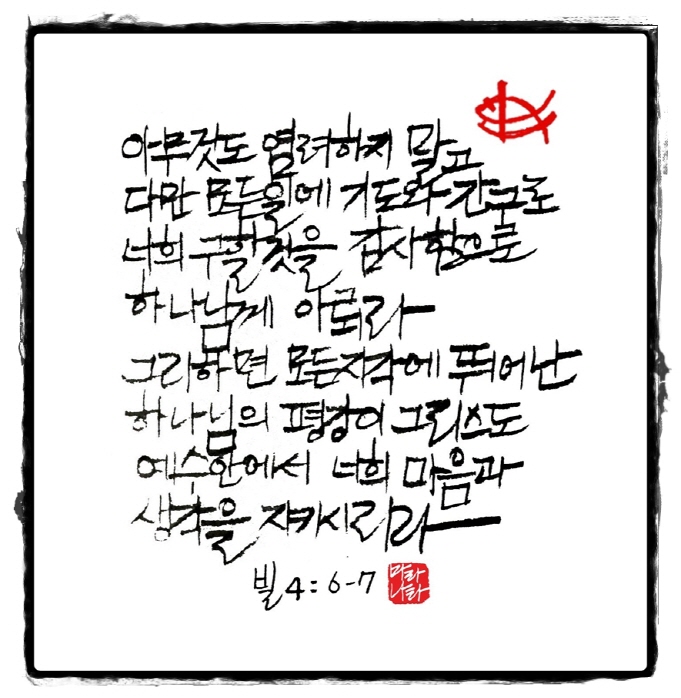 아무것도 염려하지 말고
다만 모든일에 기도와 간구로
너희 구할것을 감사함으로
하나님께 아뢰라
그리하면 모든지각에 뛰어난
하나님의 평강이 그리스도
예수안에서 너희 마음과
생각을 지키시리라
빌 4:6-7
마라
나타